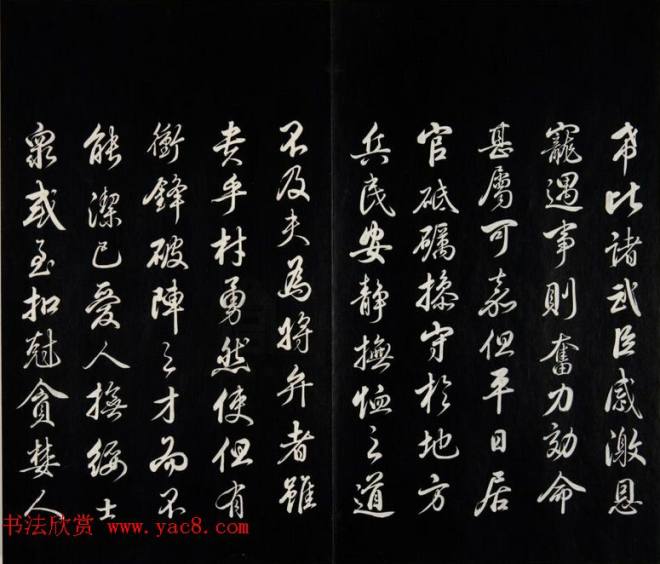 比諸武臣感激恩
寵遇事則奮力効命
甚屬可嘉但平日居
官砥礪操守於地方
兵民安靜撫恤之道
不及夫為將弁者雖
貴乎材勇然使但有
衝鋒破陣之才而不
能潔己愛人撫綏士
衆或至扣尅貪婪人
书法欣赏 www.yac8.com